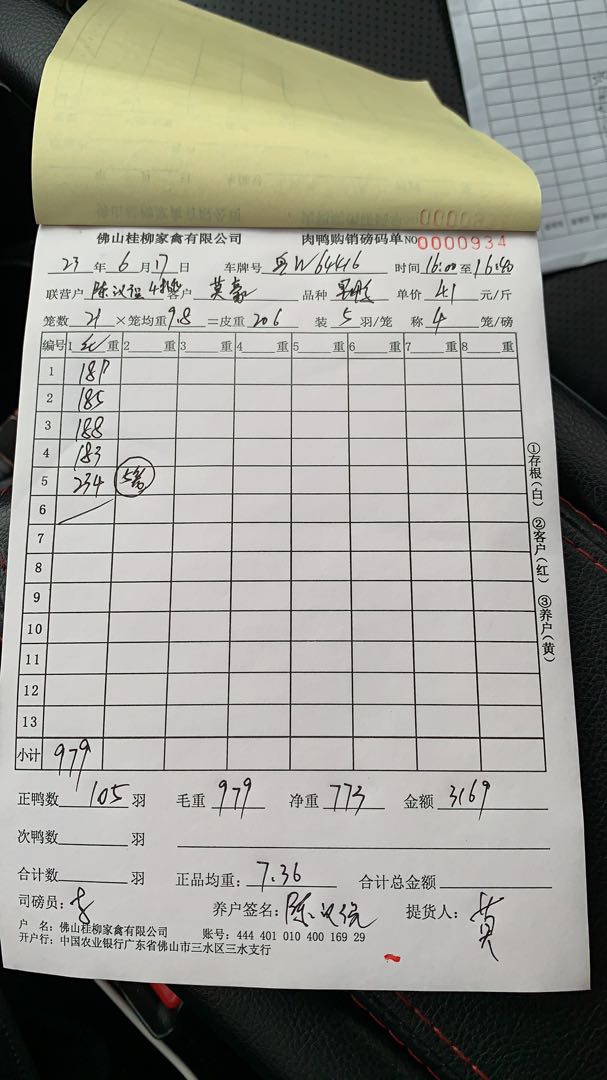 佛山桂柳家禽有限公司 肉鸭购销磅码单 NO 0000934
23 年 6 月 17 日 车牌号 粤W64416 时间 16:00 至 16:40
联营户 陈汉强 客户 莫豪 品种 单价 4.1 元/斤
笼数 21 ×笼均重 9.8 =皮重 206 装 5 羽/笼 称 4 笼/磅
编号 1 红 重 2 重 3 重 4 重 5 重 6 重 7 重 8 重
1 187
2 185
3 188
4 183
5 234 5笼
6
7
8
9
10
11
12
13
小计 979
正鸭数 105 羽 毛重 979 净重 773 金额 3169
次鸭数 羽
合计数 羽 正品均重: 7.36 合计总金额
司磅员: 养户签名: 陈汉强 提货人: 黄
户 名: 佛山桂柳家禽有限公司 账号: 444 401 010 400 169 29
开户行: 中国农业银行广东省佛山市三水区三水支行
①存根(白) ②客户(红) ③养户(黄)